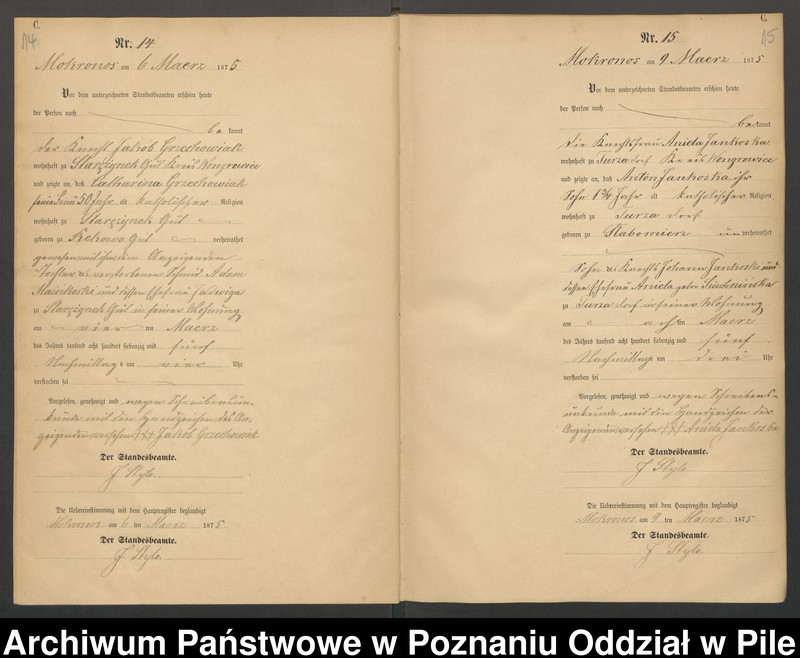 C.
14
Nr. 14
Mokronos am 6 Maerz 1875
Vor dem unterzeichneten Standesbeamten erschien heute
der Person nach
be kannt
der Knecht Jakob Grzechowiak
wohnhaft zu Starczynek Gut Kreis Wongrowiec
und zeigte an, daß Catharina Grzechowiak
seine Frau 50 Jahr a katholischer Religion
wohnhaft zu Starczynek Gut
geboren zu Rekowo Gut verheirathet
gewesen mit ihm dem Anzeigenden
Tochter des verstorbenen Schmid Adam
und dessen Ehefrau Jadwiga
zu Starczynek Gut in seiner Wohnung
am vier ten Maerz
des Jahres tausend acht hundert siebenzig und fünf
Nachmittags um vier Uhr
verstorben sei
Vorgelesen, genehmigt und wegen Schreibensun-
kunde mit den Handzeichen des An-
zeigenden versehen +++ Jakob Grzechowiak
Der Standesbeamte.
J Stylo.
Die Uebereinstimmung mit dem Hauptregister beglaubigt
Mokronos am 6 ten Maerz 1875
Der Standesbeamte.
J Stylo.
C.
15
Nr. 15
Mokronos am 9 Maerz 1875
Vor dem unterzeichneten Standesbeamten erschien heute
der Person nach
be kannt
die Knechtsfrau Aniela Jankoska
wohnhaft zu Turza dorf Kreis Wongrowiec
und zeigte an, daß Anton Jankoska ihr
Sohn 1¾ Jahr alt katholischer Religion
wohnhaft zu Turza dorf
geboren zu Slabomierz un verheirathet
Sohn des Knechts Johann Jankoski und
dessen Ehefrau Aniela geborn
zu Turza dorf in seiner Wohnung
am acht ten Maerz
des Jahres tausend acht hundert siebenzig und fünf
Nachmittags um drei Uhr
verstorben sei
Vorgelesen, genehmigt und wegen Schreibens-
unkunde mit den Handzeichen der
Anzeigenden versehen +++ Aniela Jankoska
Der Standesbeamte.
J Stylo
Die Uebereinstimmung mit dem Hauptregister beglaubigt
Mokronos am 9 ten Maerz 1875
Der Standesbeamte.
J Stylo.
Archiwum Państwowe w Poznaniu Oddział w Pile